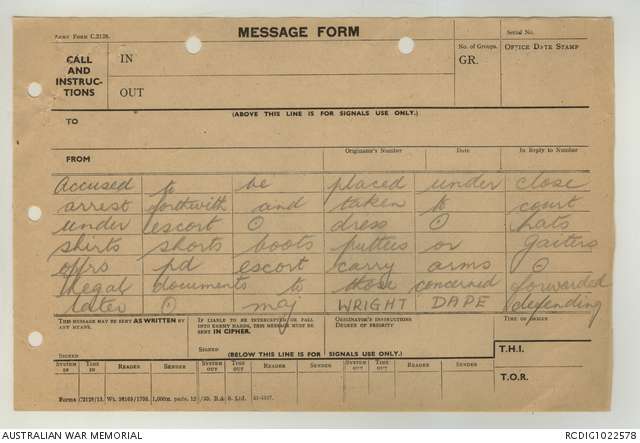 Army Form C.2128.
MESSAGE FORM
Serial No.
CALL AND INSTRUC- TIONS
IN
OUT
No. of Groups.
GR.
OFFICE DATE STAMP
(ABOVE THIS LINE IS FOR SIGNALS USE ONLY.)
TO
FROM
Originator's Number
Date
In Reply to Number
Accused to be placed under close
arrest forthwith and taken to court
under escort ⊙ dress ⊙ hats
shirts shorts boots puttees or gaiters
offrs pd escort carry arms ⊙
legal documents to those concerned forwarded
later ⊙ maj WRIGHT DAPE defending
THIS MESSAGE MAY BE SENT AS WRITTEN BY ANY MEANS.
IF LIABLE TO BE INTERCEPTED OR FALL INTO ENEMY HANDS, THIS MESSAGE MUST BE SENT IN CIPHER.
ORIGINATOR'S INSTRUCTIONS DEGREE OF PRIORITY
TIME OF ORIGIN
SIGNED
SIGNED
(BELOW THIS LINE IS FOR SIGNALS USE ONLY.)
T.H.I.
T.O.R.
SYSTEM IN
TIME IN
READER
SENDER
SYSTEM OUT
TIME OUT
READER
SENDER
SYSTEM OUT
TIME OUT
READER
SENDER
AUSTRALIAN WAR MEMORIAL
RCDIG1022578